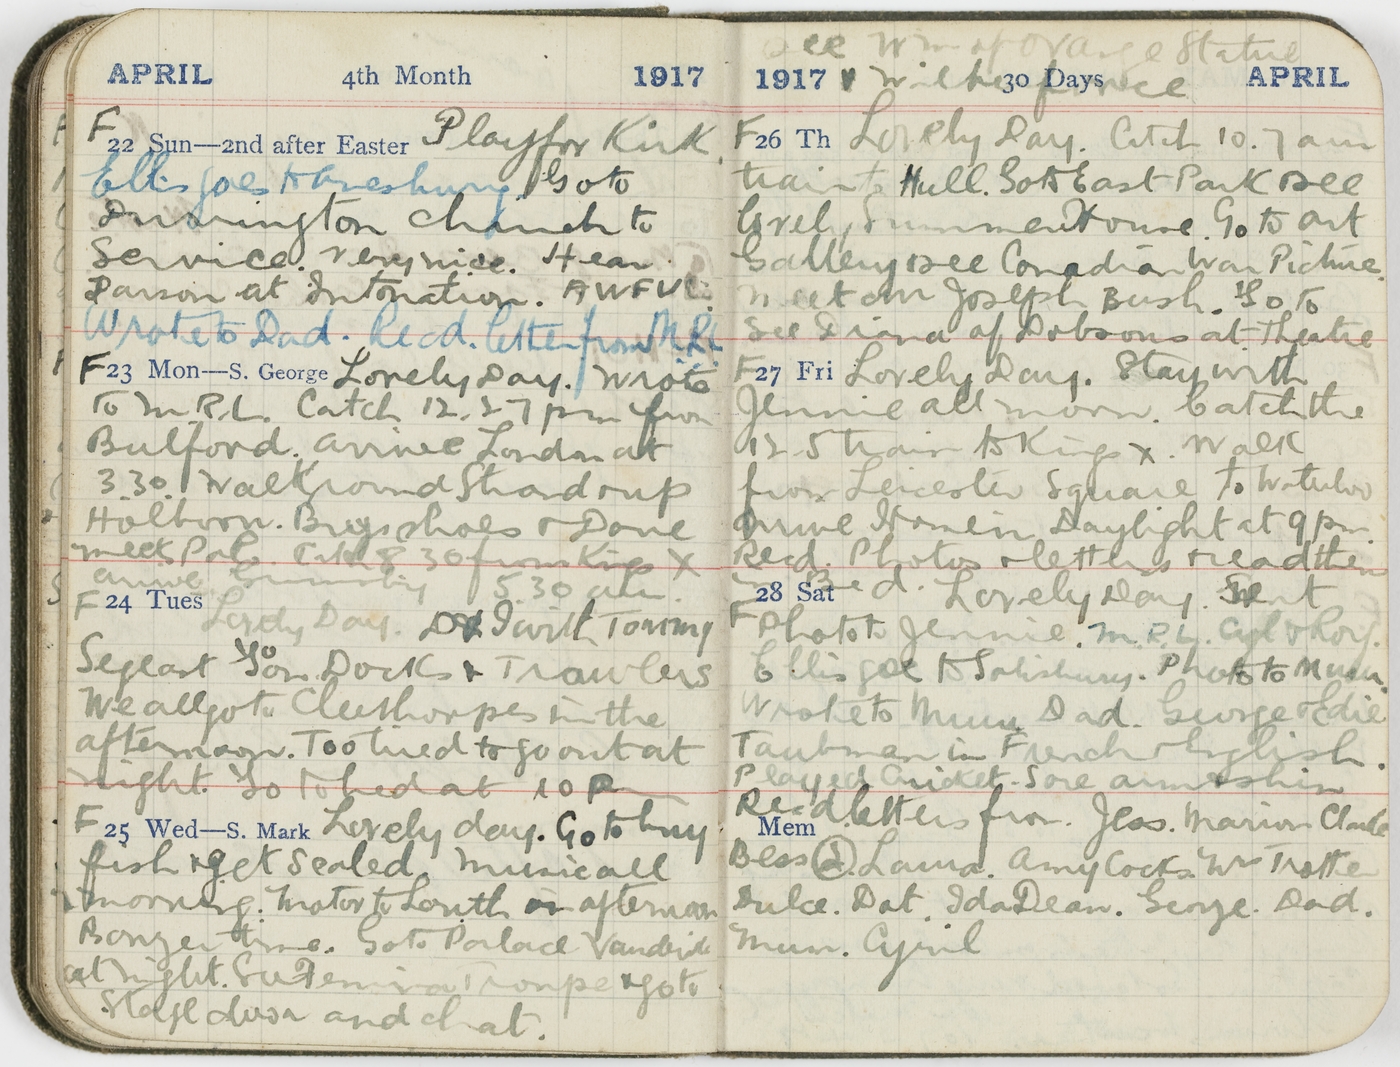 APRIL 4th Month 1917
F 22 Sun—2nd after Easter Play for Kirk.
Ellis goes to Amesbury. Go to
Durrington Church to
Service. Very nice. Hear
Parson at Intonation. A.W.F.V.C.
Wrote to Dad. Recd. letter from M.R.L.
F 23 Mon—S. George Lovely Day. Wrote
to M.R.L. Catch 12.27 pm from
Bulford. arrive London at
3.30. Walk round Strand & up
Holborn. Buys shoes &
meet Pals. Catch 8.30 from Kings X
arrive Grimsby 5.30 am.
F 24 Tues Lovely Day. I with Tommy
Go on Docks & Trawlers
We all go to Cleethorpes in the
afternoon. Too tired to go out at
night. Go to bed at 10 Pm
F 25 Wed—S. Mark Lovely day. Go to buy
fish & get Sealed. Music all
morning. Motor to Louth in afternoon
Bonzer time. Go to Palace Vaudeville
at night. See Troupe & go to
Stage door and chat.
See Wm of Orange Statue
& Wilberforce
1917 30 Days APRIL
F 26 Th Lovely Day. Catch 10.7 am
train to Hull. Go to East Park & see
lovely Summer House. Go to Art
Gallery & see Canadian War Picture.
Meet our Joseph Bush. Go to
See Diana of Dobsons at Theatre
F 27 Fri Lovely Day. Stay with
Jennie all morn. Catch the
12.5 train to Kings X. Walk
from Leicester Square to Waterloo
arrive Home in Daylight at 9 pm.
Recd. Photos & letters & read them
in Bed.
F 28 Sat Lovely Day. Sent
Photo to Jennie. M.R.L. Cyl & Roy.
Ellis goe to Salisbury. Photo to Mum.
Wrote to Mum Dad. George & Edie
Taubman in French & English.
Played Cricket. Sore arm & shin
Recd. letters from. Jess. Marion Clarke
Mem
Bess (2). Laura. Amy Cocks. Mrs Trotter
Dulce. Dat. Ida Dean. George. Dad.
Mum. Cyril